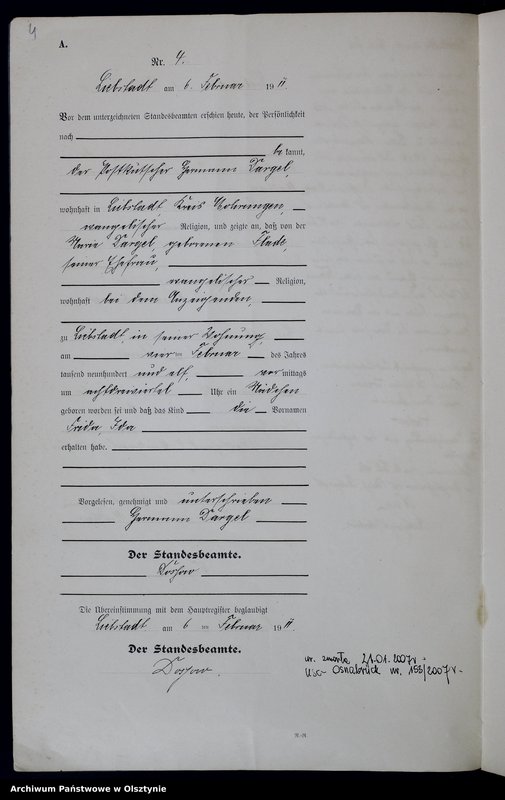 4
A.
Nr. 4.
Liebstadt am 6. Februar 1911.
Vor dem unterzeichneten Standesbeamten erschien heute, der Persönlichkeit
nach
be kannt,
der Postkutscher Hermann Dargel,
wohnhaft in Liebstadt, Kreis Mohrungen,
evangelischer Religion, und zeigte an, daß von der
Maria Dargel, geborenen Flade,
seiner Ehefrau,
evangelischer Religion,
wohnhaft bei dem Anzeigenden,
zu Liebstadt, in seiner Wohnung,
am vier ten Februar des Jahres
tausend neunhundert und elf, vor mittags
um achtdreiviertel Uhr ein Mädchen
geboren worden sei und daß das Kind die Vornamen
Frida, Ida
erhalten habe.
Vorgelesen, genehmigt und unterschrieben
Hermann Dargel
Der Standesbeamte.
Die Übereinstimmung mit dem Hauptregister beglaubigt
Liebstadt, am 6 ten Februar 1911.
Der Standesbeamte.
zmarła 21.01.2007r -
USC Osnabrück nr. 153/2007r -
Archiwum Państwowe w Olsztynie